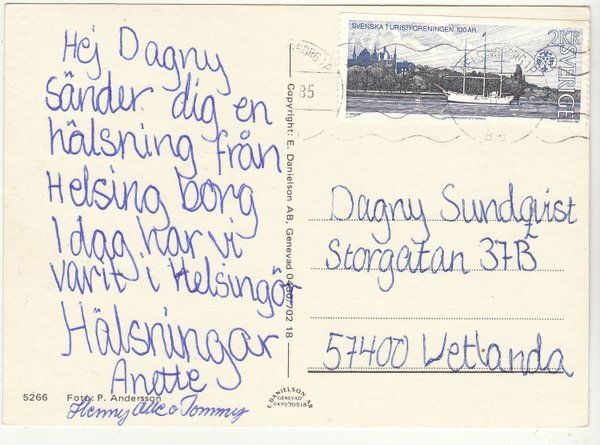 Hej Dagny
sänder dig en
hälsning från
Helsing borg
Idag har vi
varit i Helsingör
Hälsningar
Anette
5266 Foto: P. Andersson
Henny o Tommy
Copyright: E. Danielson AB, Genevad 0430/702 18
E DANIELSON AB
GENEVAD
0430/70218
SVENSKA TURISTFÖRENINGEN 100 ÅR.
2KR
SVERIGE
85
Dagny Sundqvist
Storgatan 37B
57400 Vetlanda